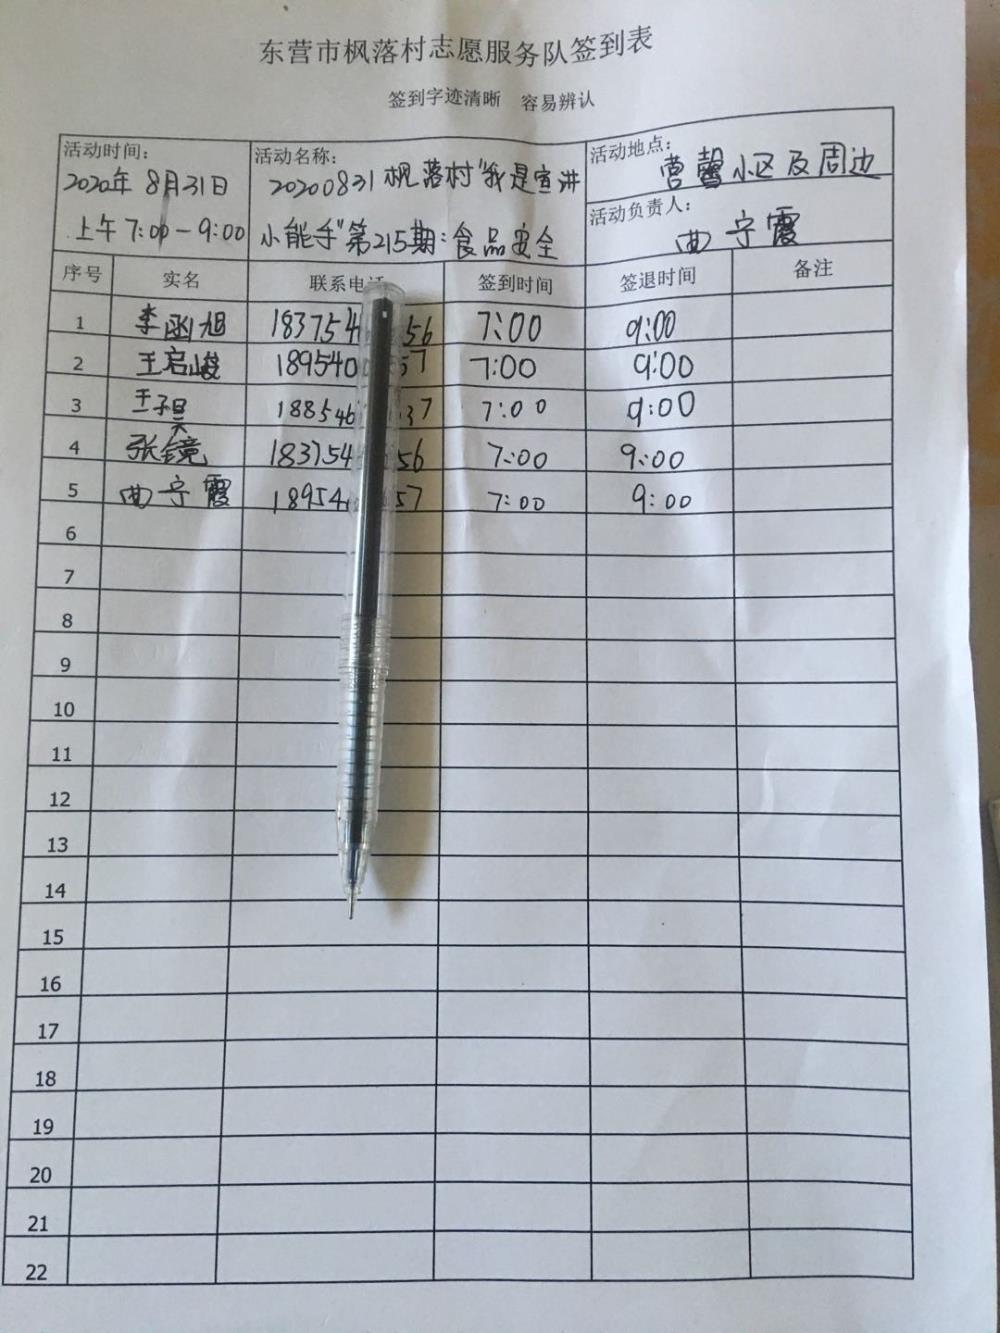 东营市枫落村志愿服务队签到表
签到字迹清晰 容易辨认
活动时间:
2020年8月31日
上午7:00-9:00
活动名称:
20200831枫落村"我是宣讲
小能手"第215期:食品安全
活动地点:
营馨小区及周边
活动负责人:
曲宁霞
序号 实名 联系电话 签到时间 签退时间 备注
1 李函旭 183754 56 7:00 9:00
2 王启峻 189540 57 7:00 9:00
3 王子昊 188546 37 7:00 9:00
4 张镜 183754 56 7:00 9:00
5 曲宁霞 18954 57 7:00 9:00
6
7
8
9
10
11
12
13
14
15
16
17
18
19
20
21
22